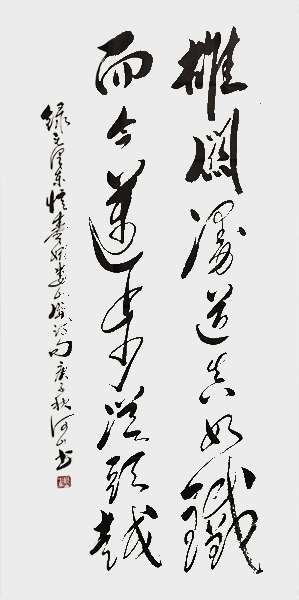 雄關漫道真如鐵
而今邁步從頭越
錄毛澤東憶秦娥婁山關詩句庚子秋河山書